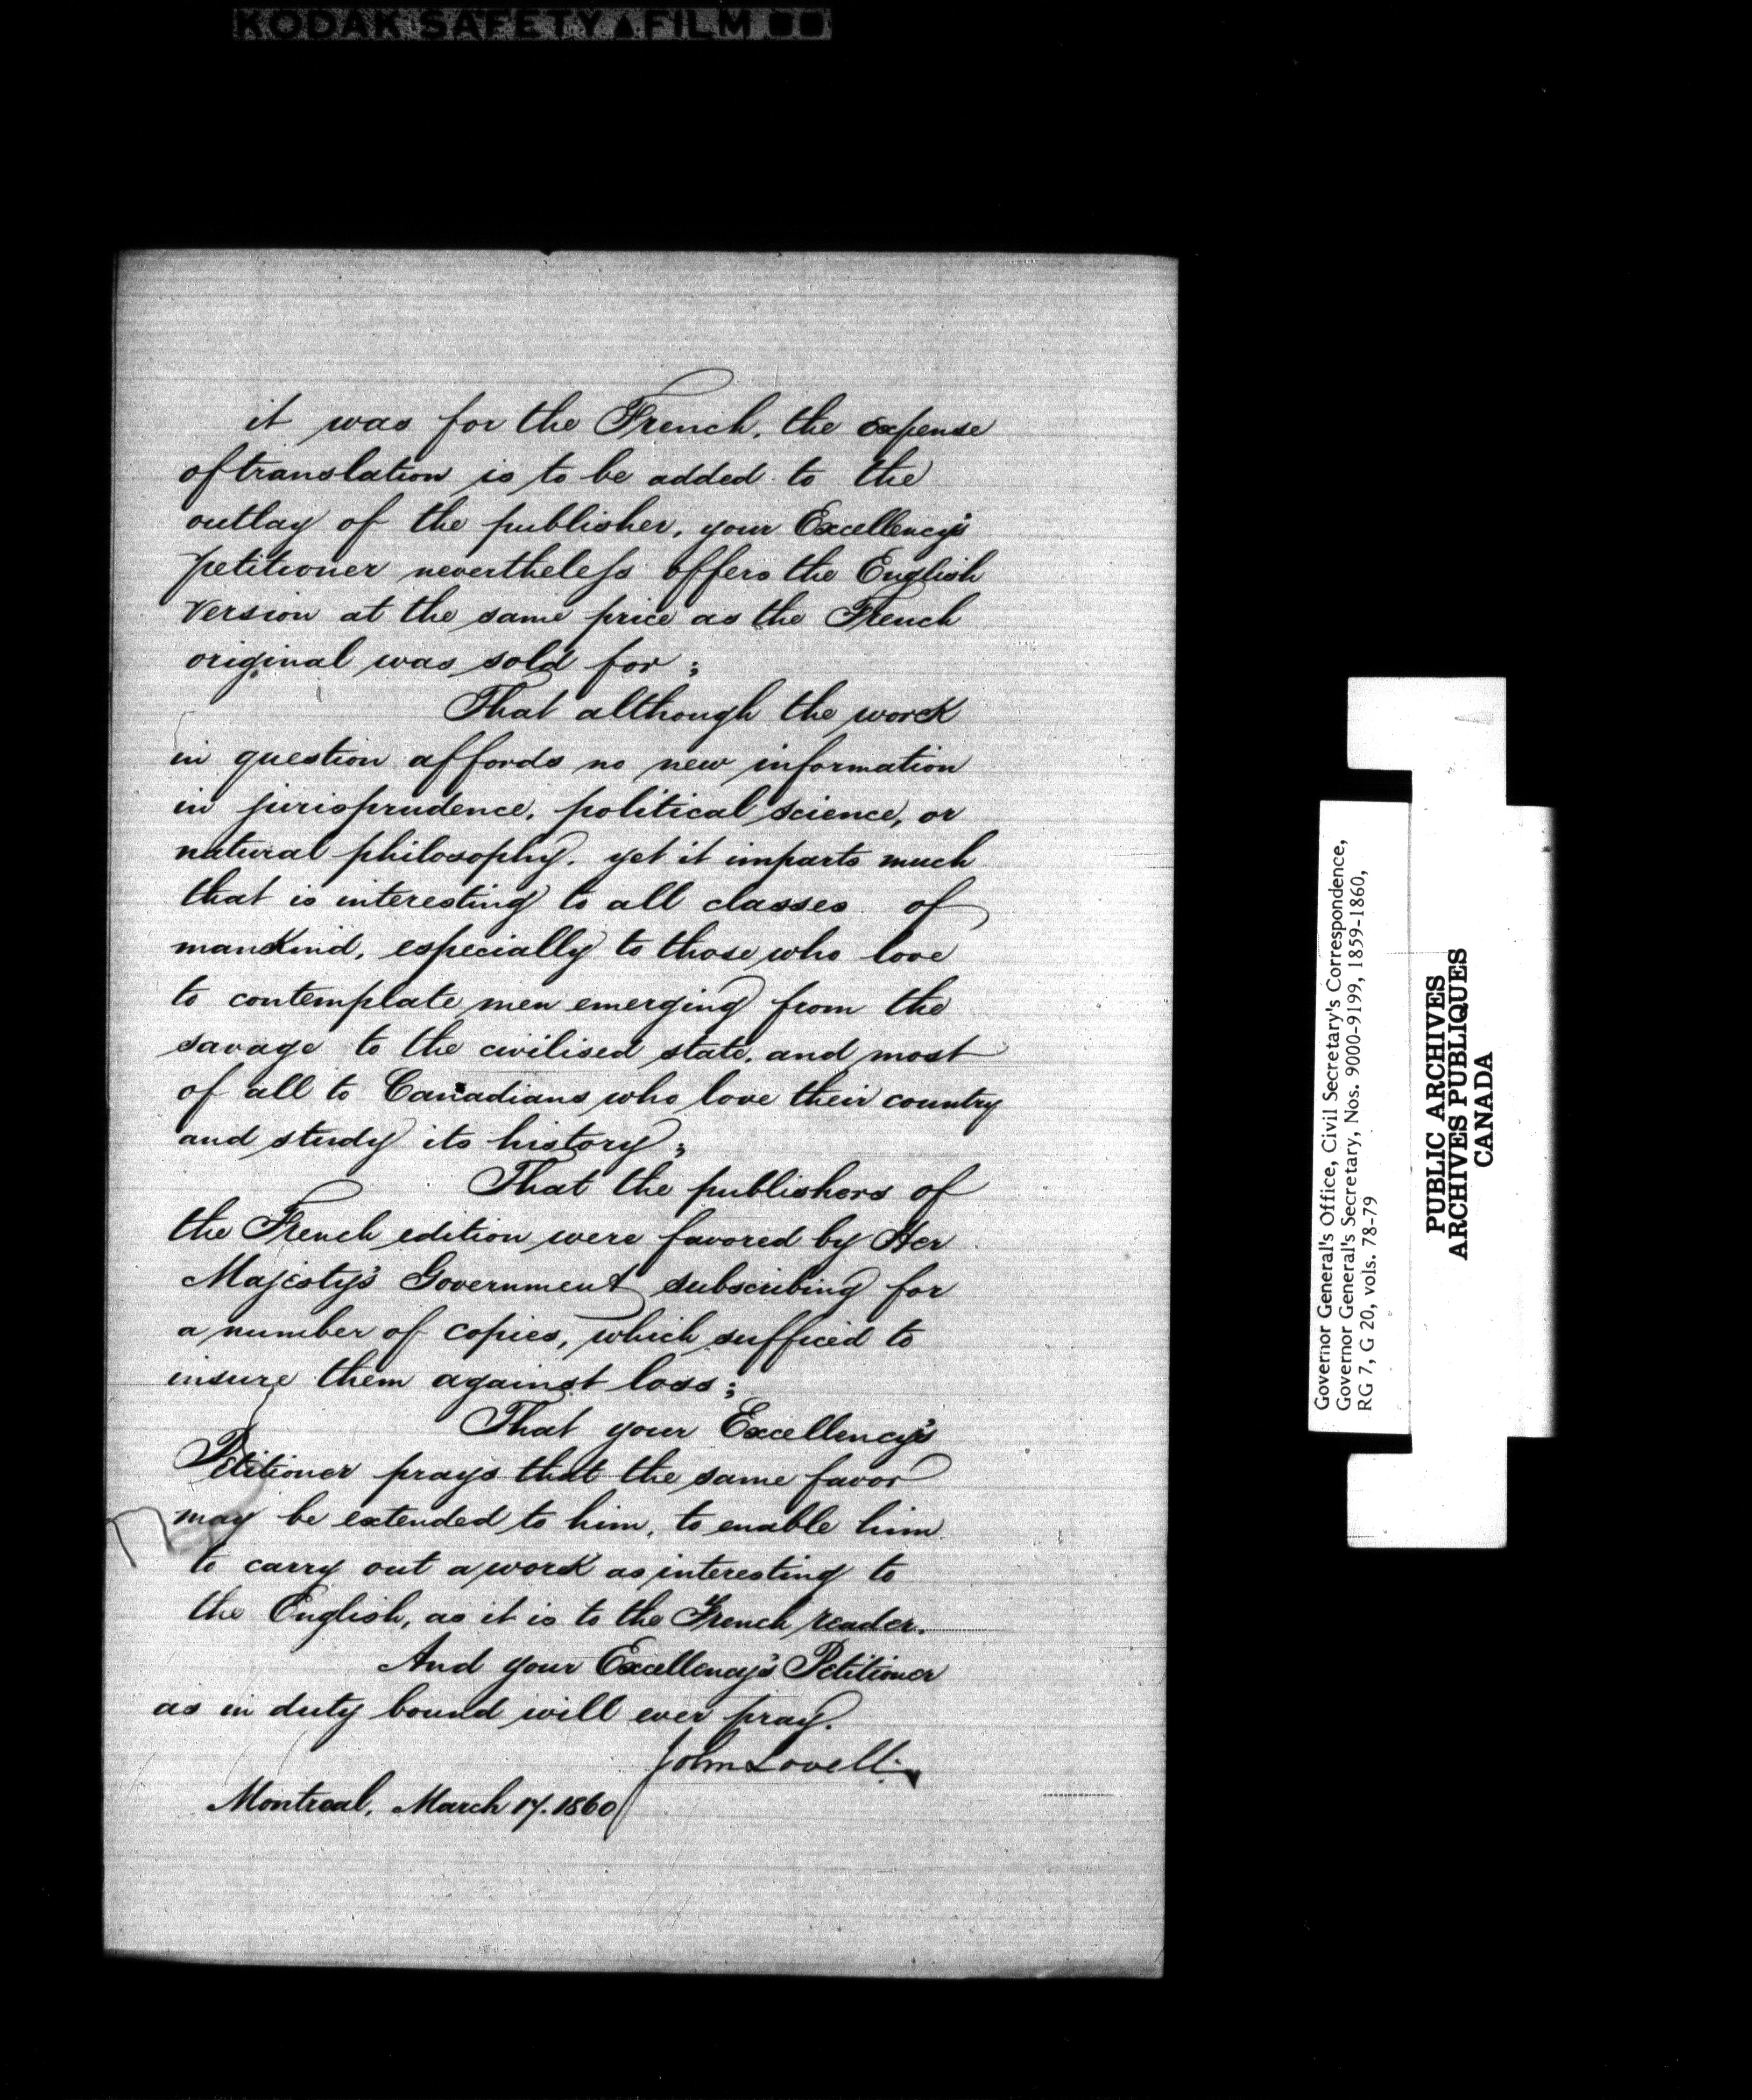 KODAK SAFETY FILM
it was for the French, the expense
of translation is to be added to the
outlay of the publisher, your Excellency's
petitioner nevertheless offers the English
version at the same price as the French
original was sold for;
That although the work
in question affords no new information
in jurisprudence, political science, or
natural philosophy, yet it imparts much
that is interesting to all classes of
mankind, especially to those who love
to contemplate men emerging from the
savage to the civilised state, and most
of all to Canadians who love their country
and study its history;
That the publishers of
the French edition were favored by Her
Majesty's Government subscribing for
a number of copies, which sufficed to
insure them against loss;
That your Excellency's
Petitioner prays that the same favor
may be extended to him, to enable him
to carry out a work as interesting to
the English, as it is to the French reader.
And your Excellency's Petitioner
as in duty bound will ever pray.
John Lovell
Montreal, March 17. 1860
Governor General's Office, Civil Secretary's Correspondence,
Governor General's Secretary, Nos. 9000-9199, 1859-1860,
RG 7, G 20, vols. 78-79
PUBLIC ARCHIVES
ARCHIVES PUBLIQUES
CANADA